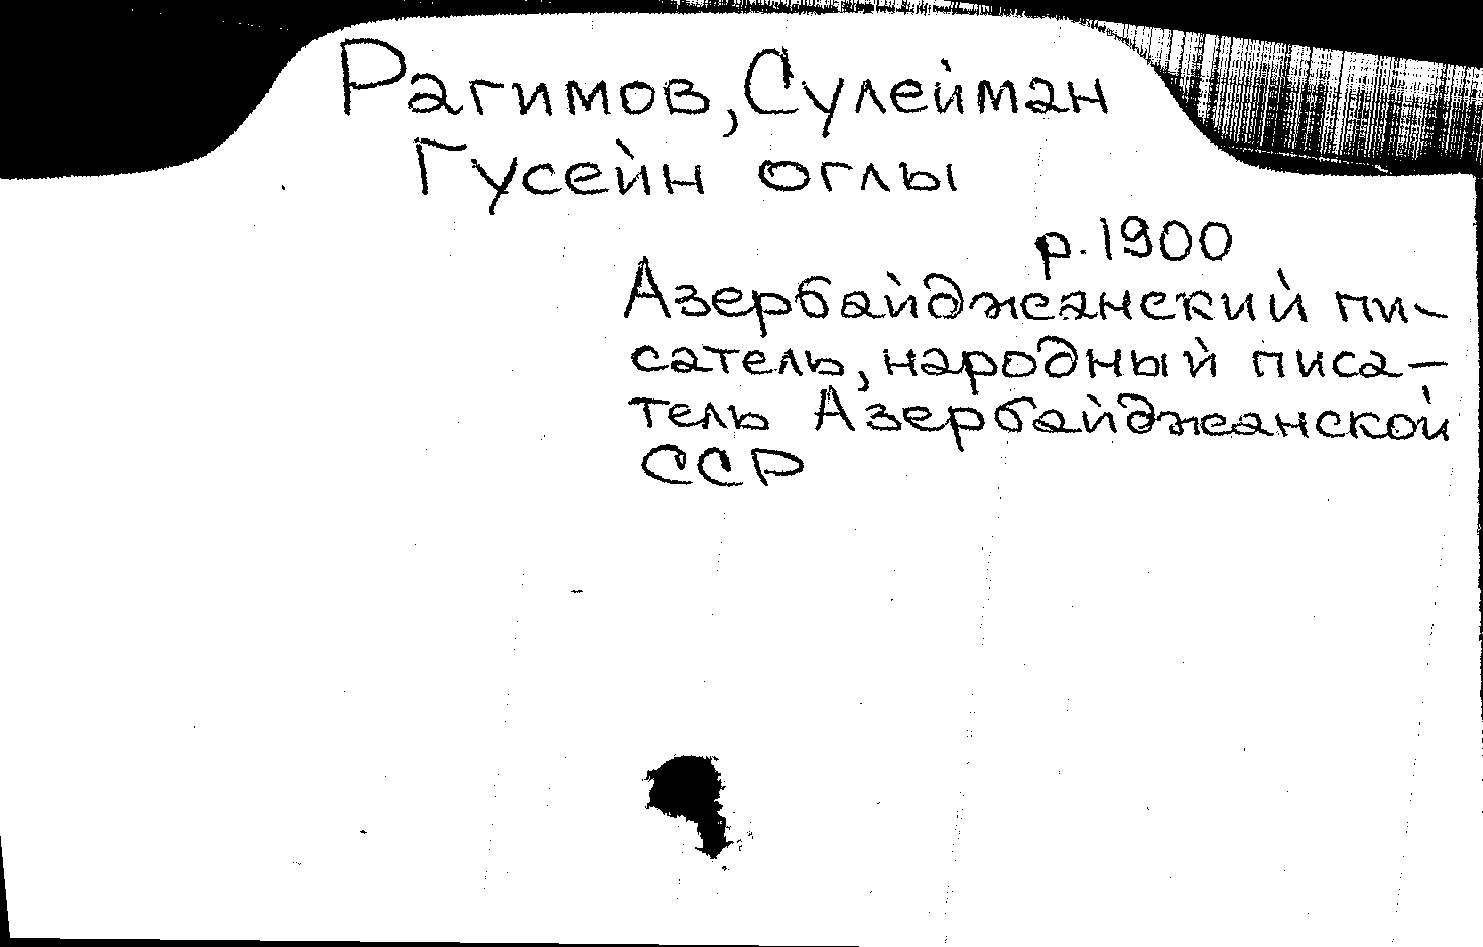 Рагимов, Сулейман
Гусейн оглы
р. 1900
Азербайджанский пи-
сатель, народный писа-
тель Азербайджанской
ССР